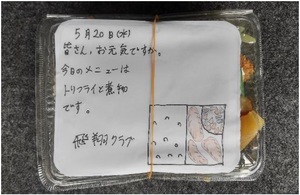 5月20日(水)
皆さん、お元気ですか。
今日のメニューは
トリフライと煮物
です。
飛翔クラブ